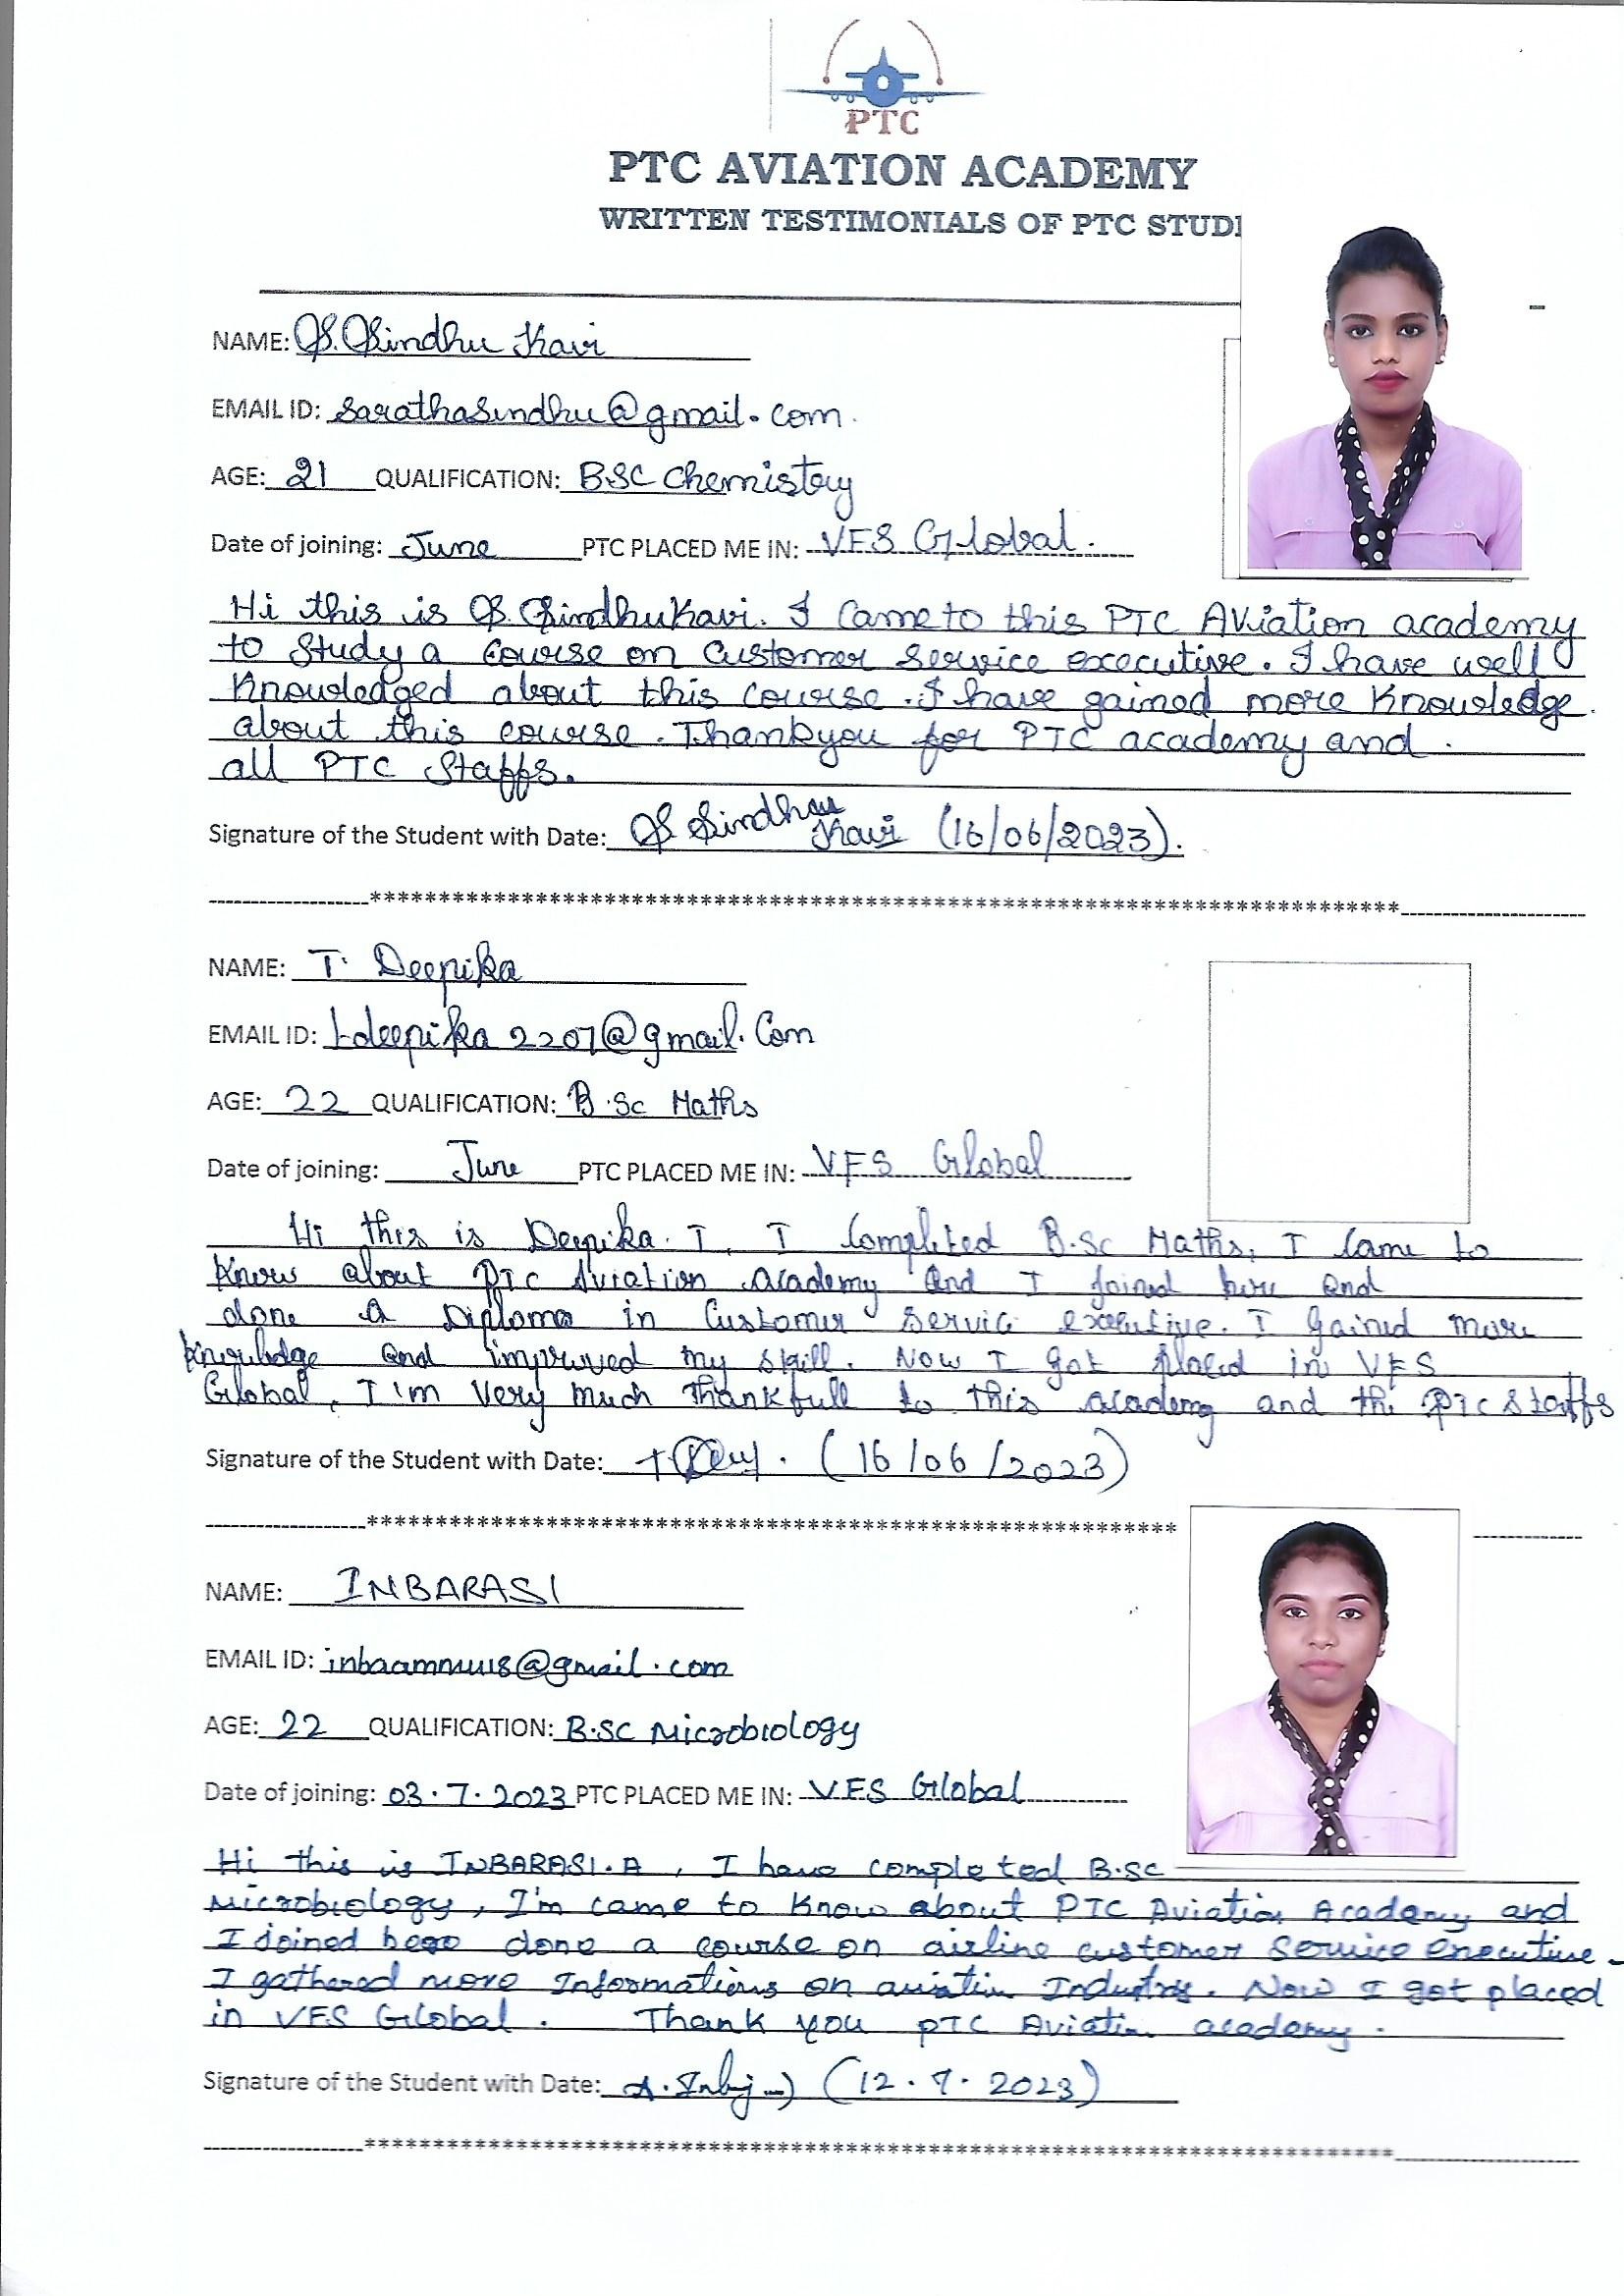 PTC
PTC AVIATION ACADEMY
WRITTEN TESTIMONIALS OF PTC STUD
NAME: S. Sindhu Kavi
EMAIL ID: sarathasindhu@gmail.com.
AGE: 21 QUALIFICATION: BSC Chemistry
Date of joining: June PTC PLACED ME IN: VFS Global.
Hi this is S. Sindhukavi. I came to this PTC Aviation academy
to study a course on customer service executive. I have well
knowledged about this course. I have gained more knowledge.
about this course. Thankyou for PTC academy and.
all PTC Staffs.
Signature of the Student with Date: S Sindhu Kavi (16/06/2023).
NAME: T. Deepika
EMAIL ID: tdeepika2207@gmail.com
AGE: 22 QUALIFICATION: B.Sc Maths
Date of joining: June PTC PLACED ME IN: VFS Global
Hi this is Deepika. T, I Completed B.Sc Maths, I came to
know about PTC Aviation academy and I joined here and
done a Diploma in Customer Service executive. I gained more
knowledge and improved my skill. Now I got placed in VFS
Global, I'm very much thankfull to this academy and the PTC staffs
Signature of the Student with Date: (16/06/2023)
NAME: INBARASI
EMAIL ID: @gmail.com
AGE: 22 QUALIFICATION: B.SC Microbiology
Date of joining: 03.7.2023 PTC PLACED ME IN: VFS Global
Hi this is INBARASI.A, I have completed B.SC
Microbiology, I'm came to know about PTC Aviation Academy and
I joined here done a course on airline customer service executive.
I gathered more Informations on aviation Industry. Now I got placed
in VFS Global. Thank you PTC Aviation academy.
Signature of the Student with Date: (12.7.2023)